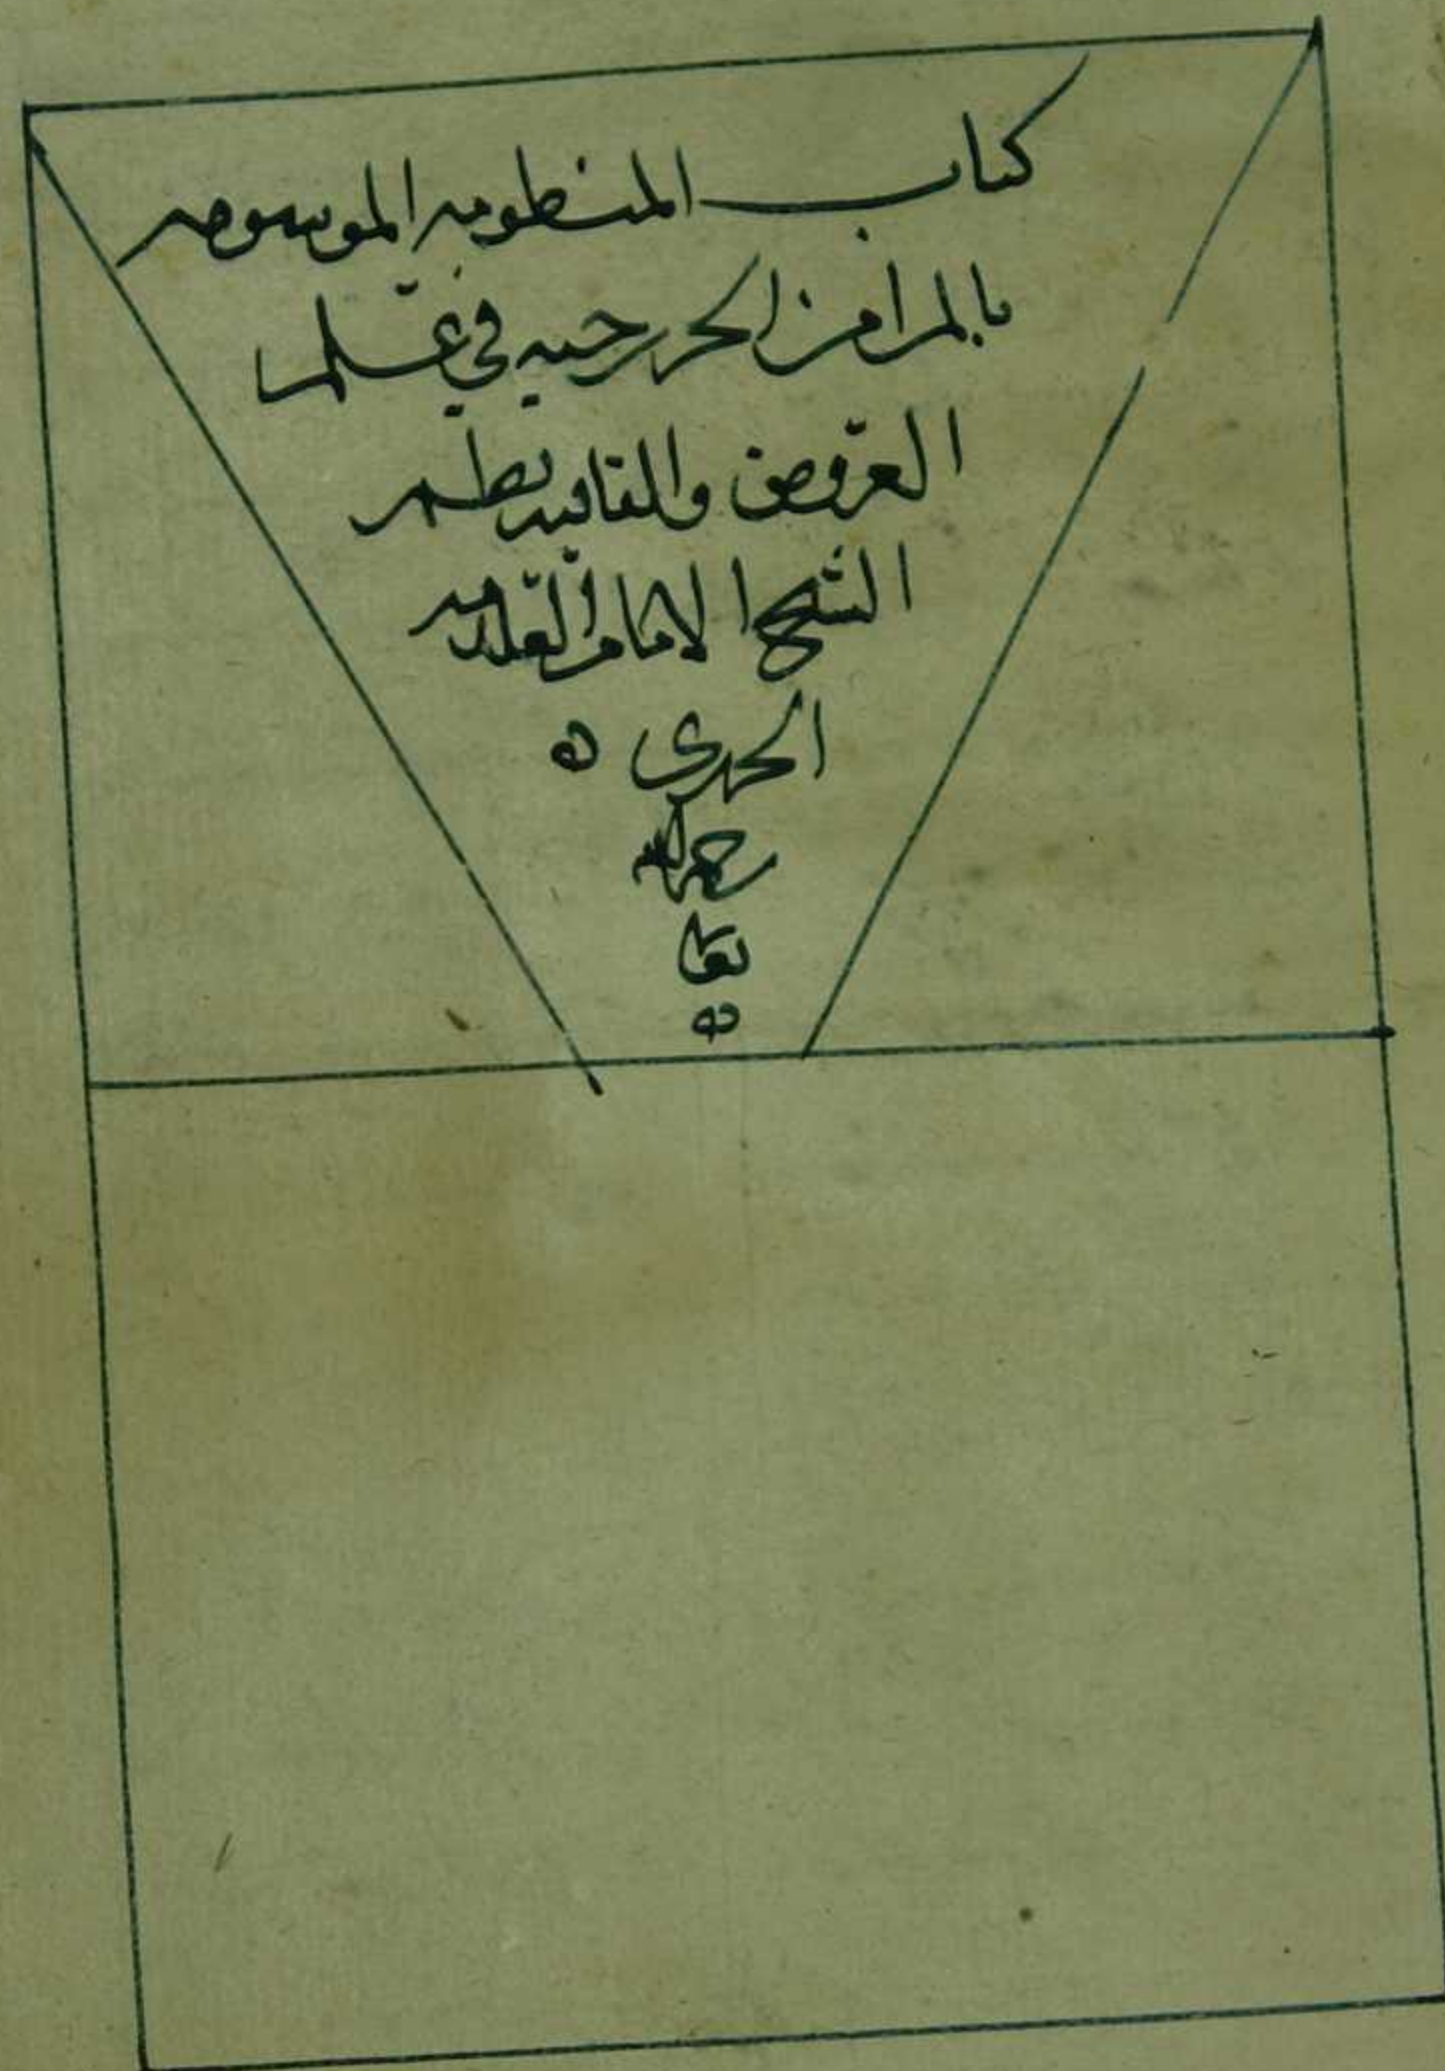 كتاب المنظومه الموسومه
بالمرامز الخزرجيه في علم
العروض والقافيه نظم
الشيخ الامام العلامه
رحمه الله
تعالى